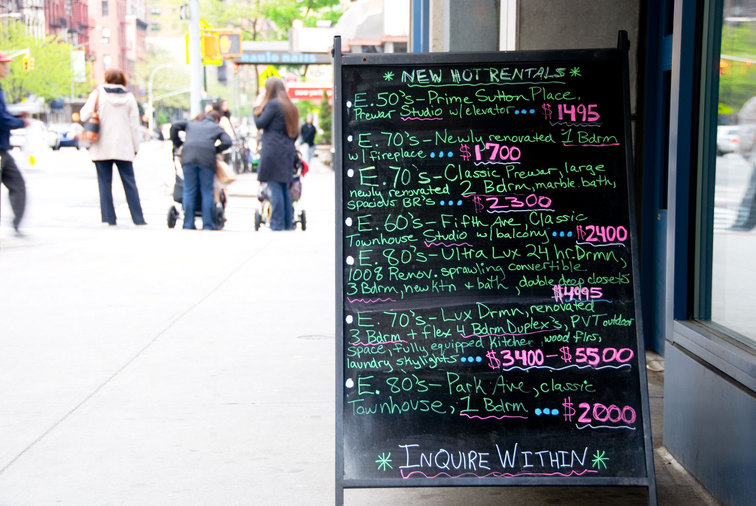 * NEW HOT RENTALS *
E. 50's - Prime Sutton Place,
Prewar Studio w/elevator... $1495
E. 70's - Newly renovated 1 Bdrm
w/fireplace... $1700
E. 70's - Classic Prewar, large
newly renovated 2 Bdrm, marble bath,
spacious BR's... $2300
E. 60's - Fifth Ave, Classic
Townhouse Studio w/balcony... $2400
E. 80's - Ultra Lux 24 hr. Drmn,
100% Renov. sprawling convertible
3 Bdrm, new ktn + bath, double deep closets
$4995
E. 70's - Lux Drmn, renovated
3 Bdrm + flex 4 Bdrm Duplex's, PVT outdoor
space, fully equipped kitchen, wood flrs,
laundry skylights... $3400 - $5500
E. 80's - Park Ave, classic
Townhouse, 1 Bdrm... $2000
* INQUIRE WITHIN *